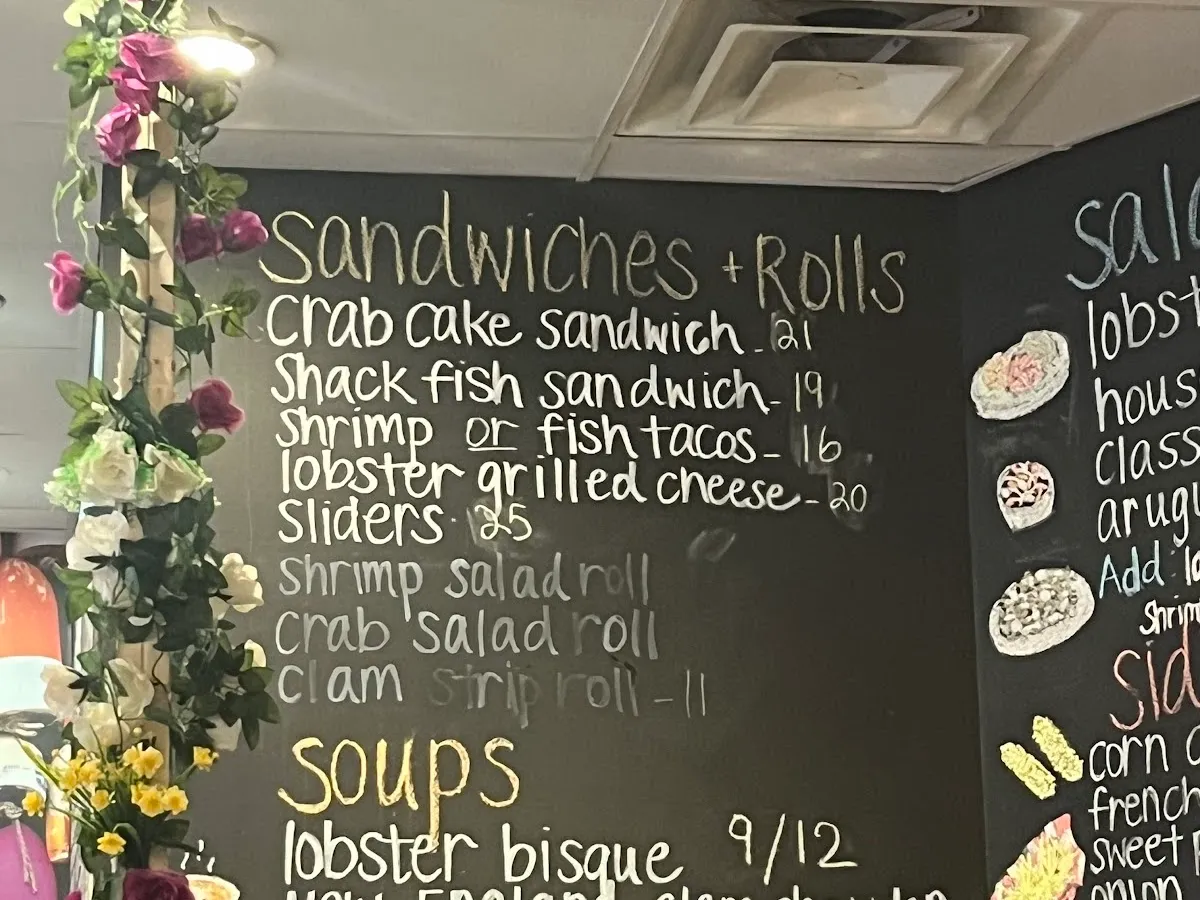 Sandwiches + Rolls
Crab cake sandwich - 21
Shack fish sandwich - 19
Shrimp or fish tacos - 16
lobster grilled cheese - 20
Sliders 25
Shrimp salad roll
Crab salad roll
Clam strip roll - 11
Soups
lobster bisque 9/12
New England clam chowder
corn
french
sweet
onion
Add